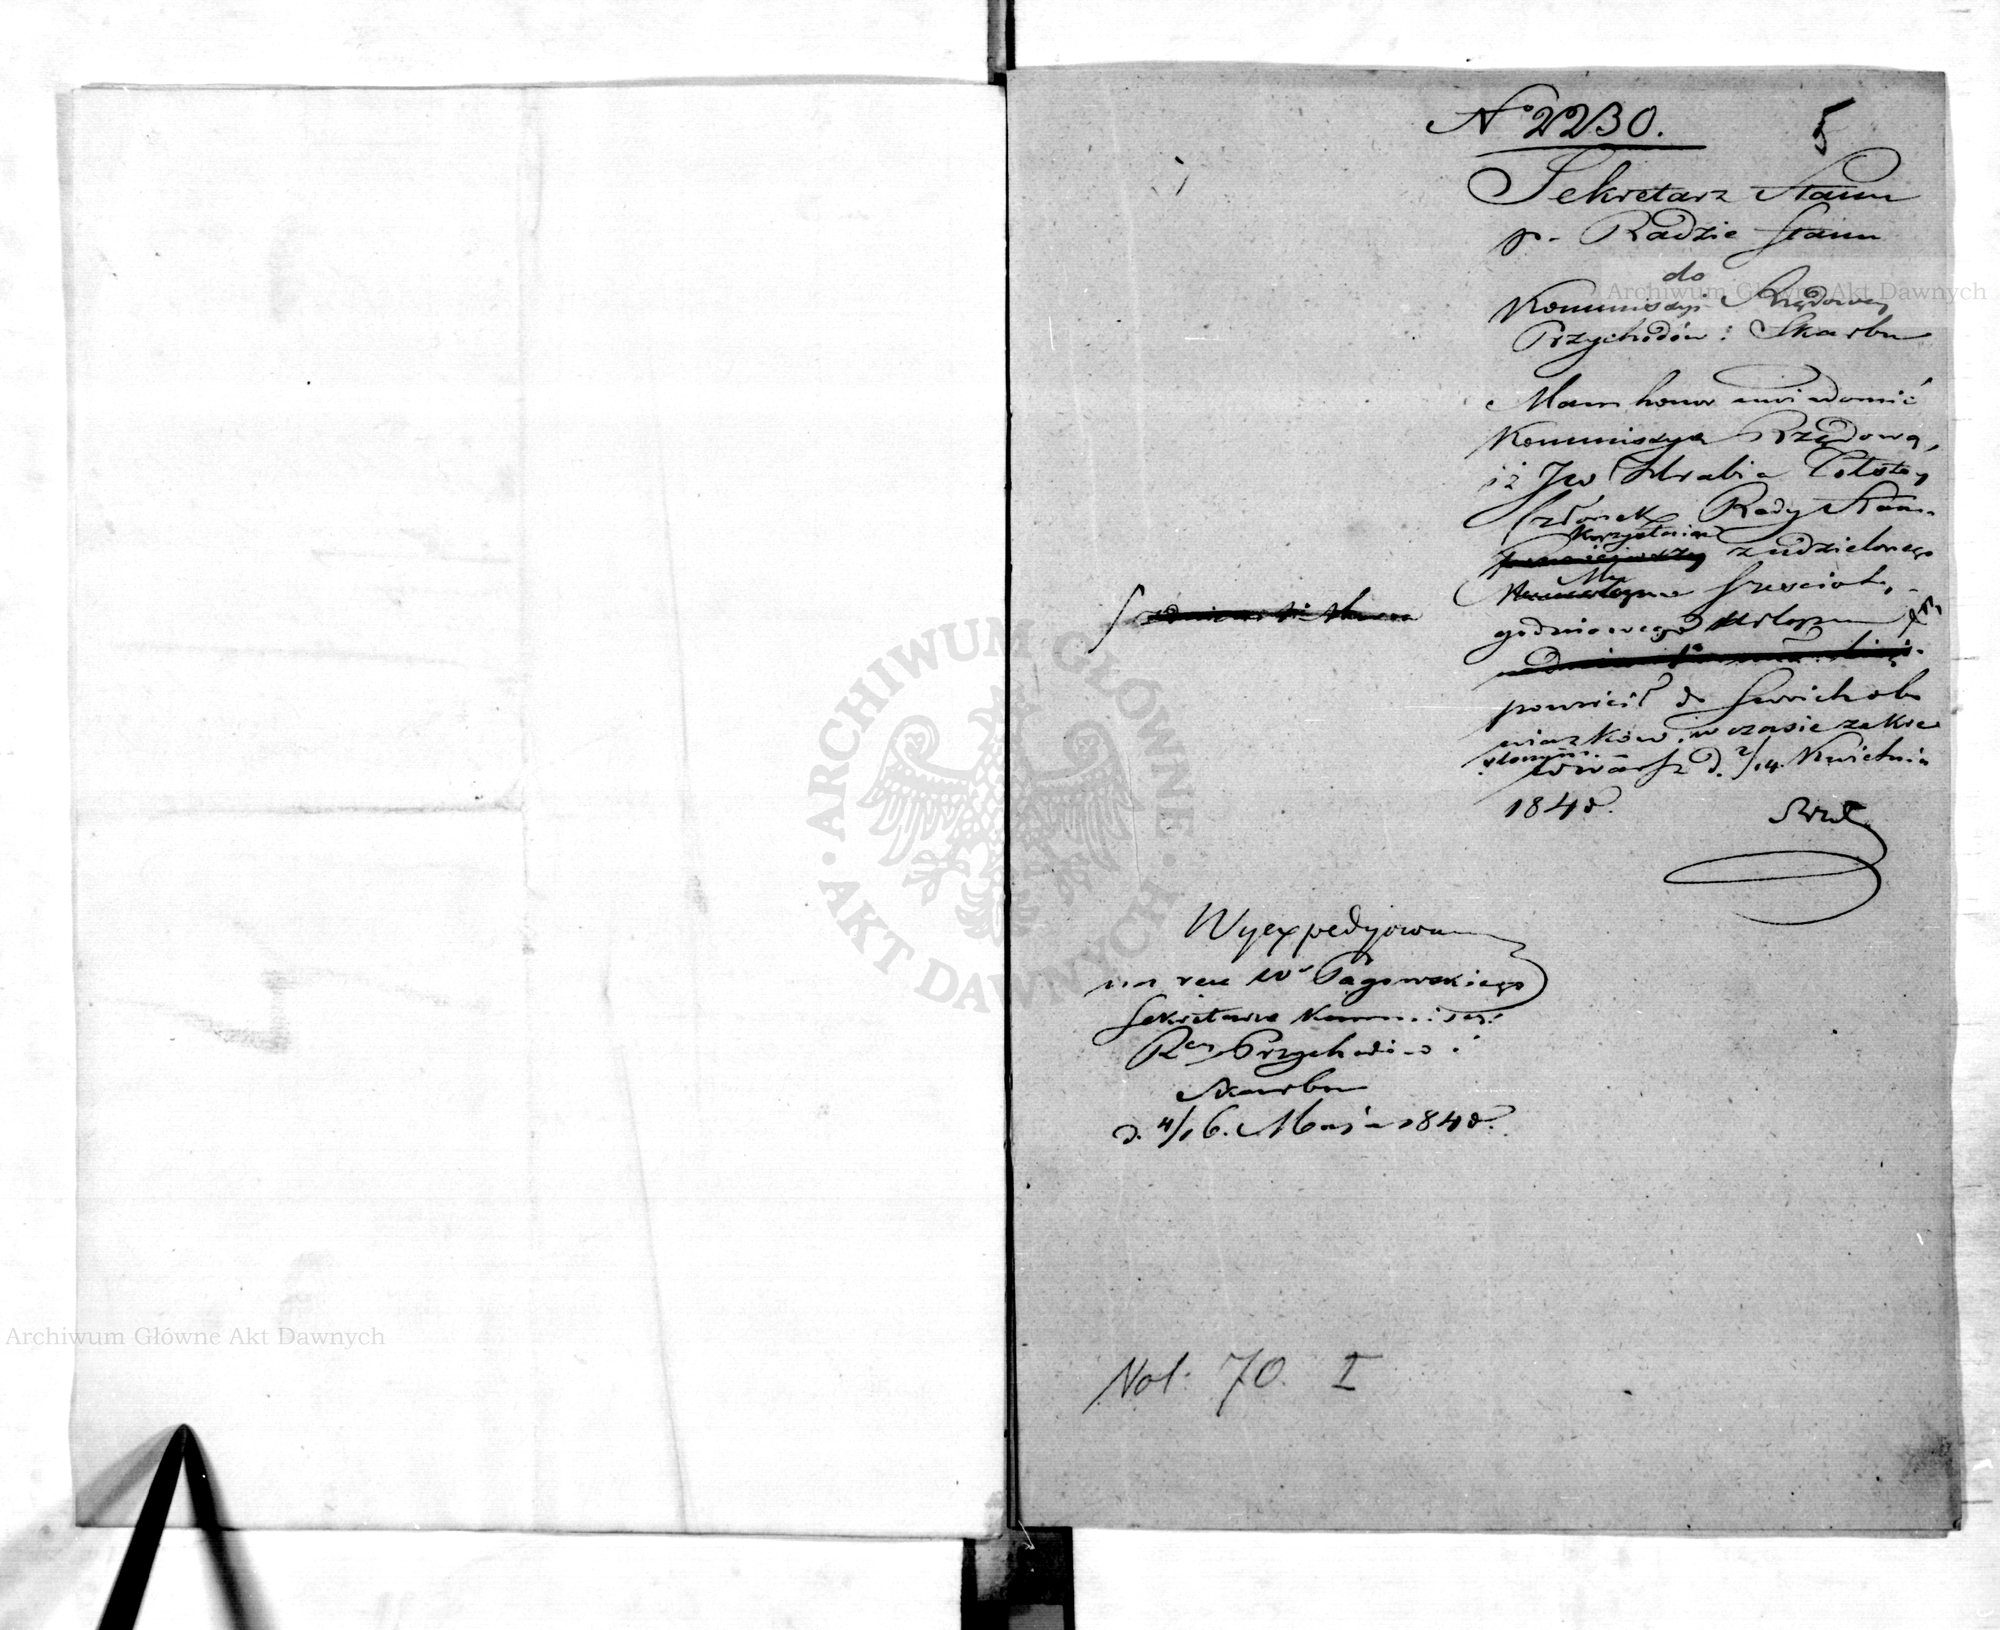 No 2230.
5
Sekretarz Stanu
p. Radzie Stanu
do
Kommissyi Rządowey
Przychodów i Skarbu
Mam honor uwiadomić
Kommissyą Rządową,
iż JW Hrabia
Członek Rady Stanu
korzystając
z udzielonego
Mu
sześcioty-
godniowego Urlopu
powrócił do swoich obo
wiązków w czasie zakre
ślonym.
w Warsz d. 2/14. Kwietnia
1848.
Wyexpedyowano
na ręce Wo Pągowskiego
Sekretarza Kommissyi
Rey Przychodów i
Skarbu
d. 4/16. Maja 1848.
Vol. 70. I
Archiwum Główne Akt Dawnych
Archiwum Główne Akt Dawnych
ARCHIWUM GŁÓWNE · AKT DAWNYCH ·